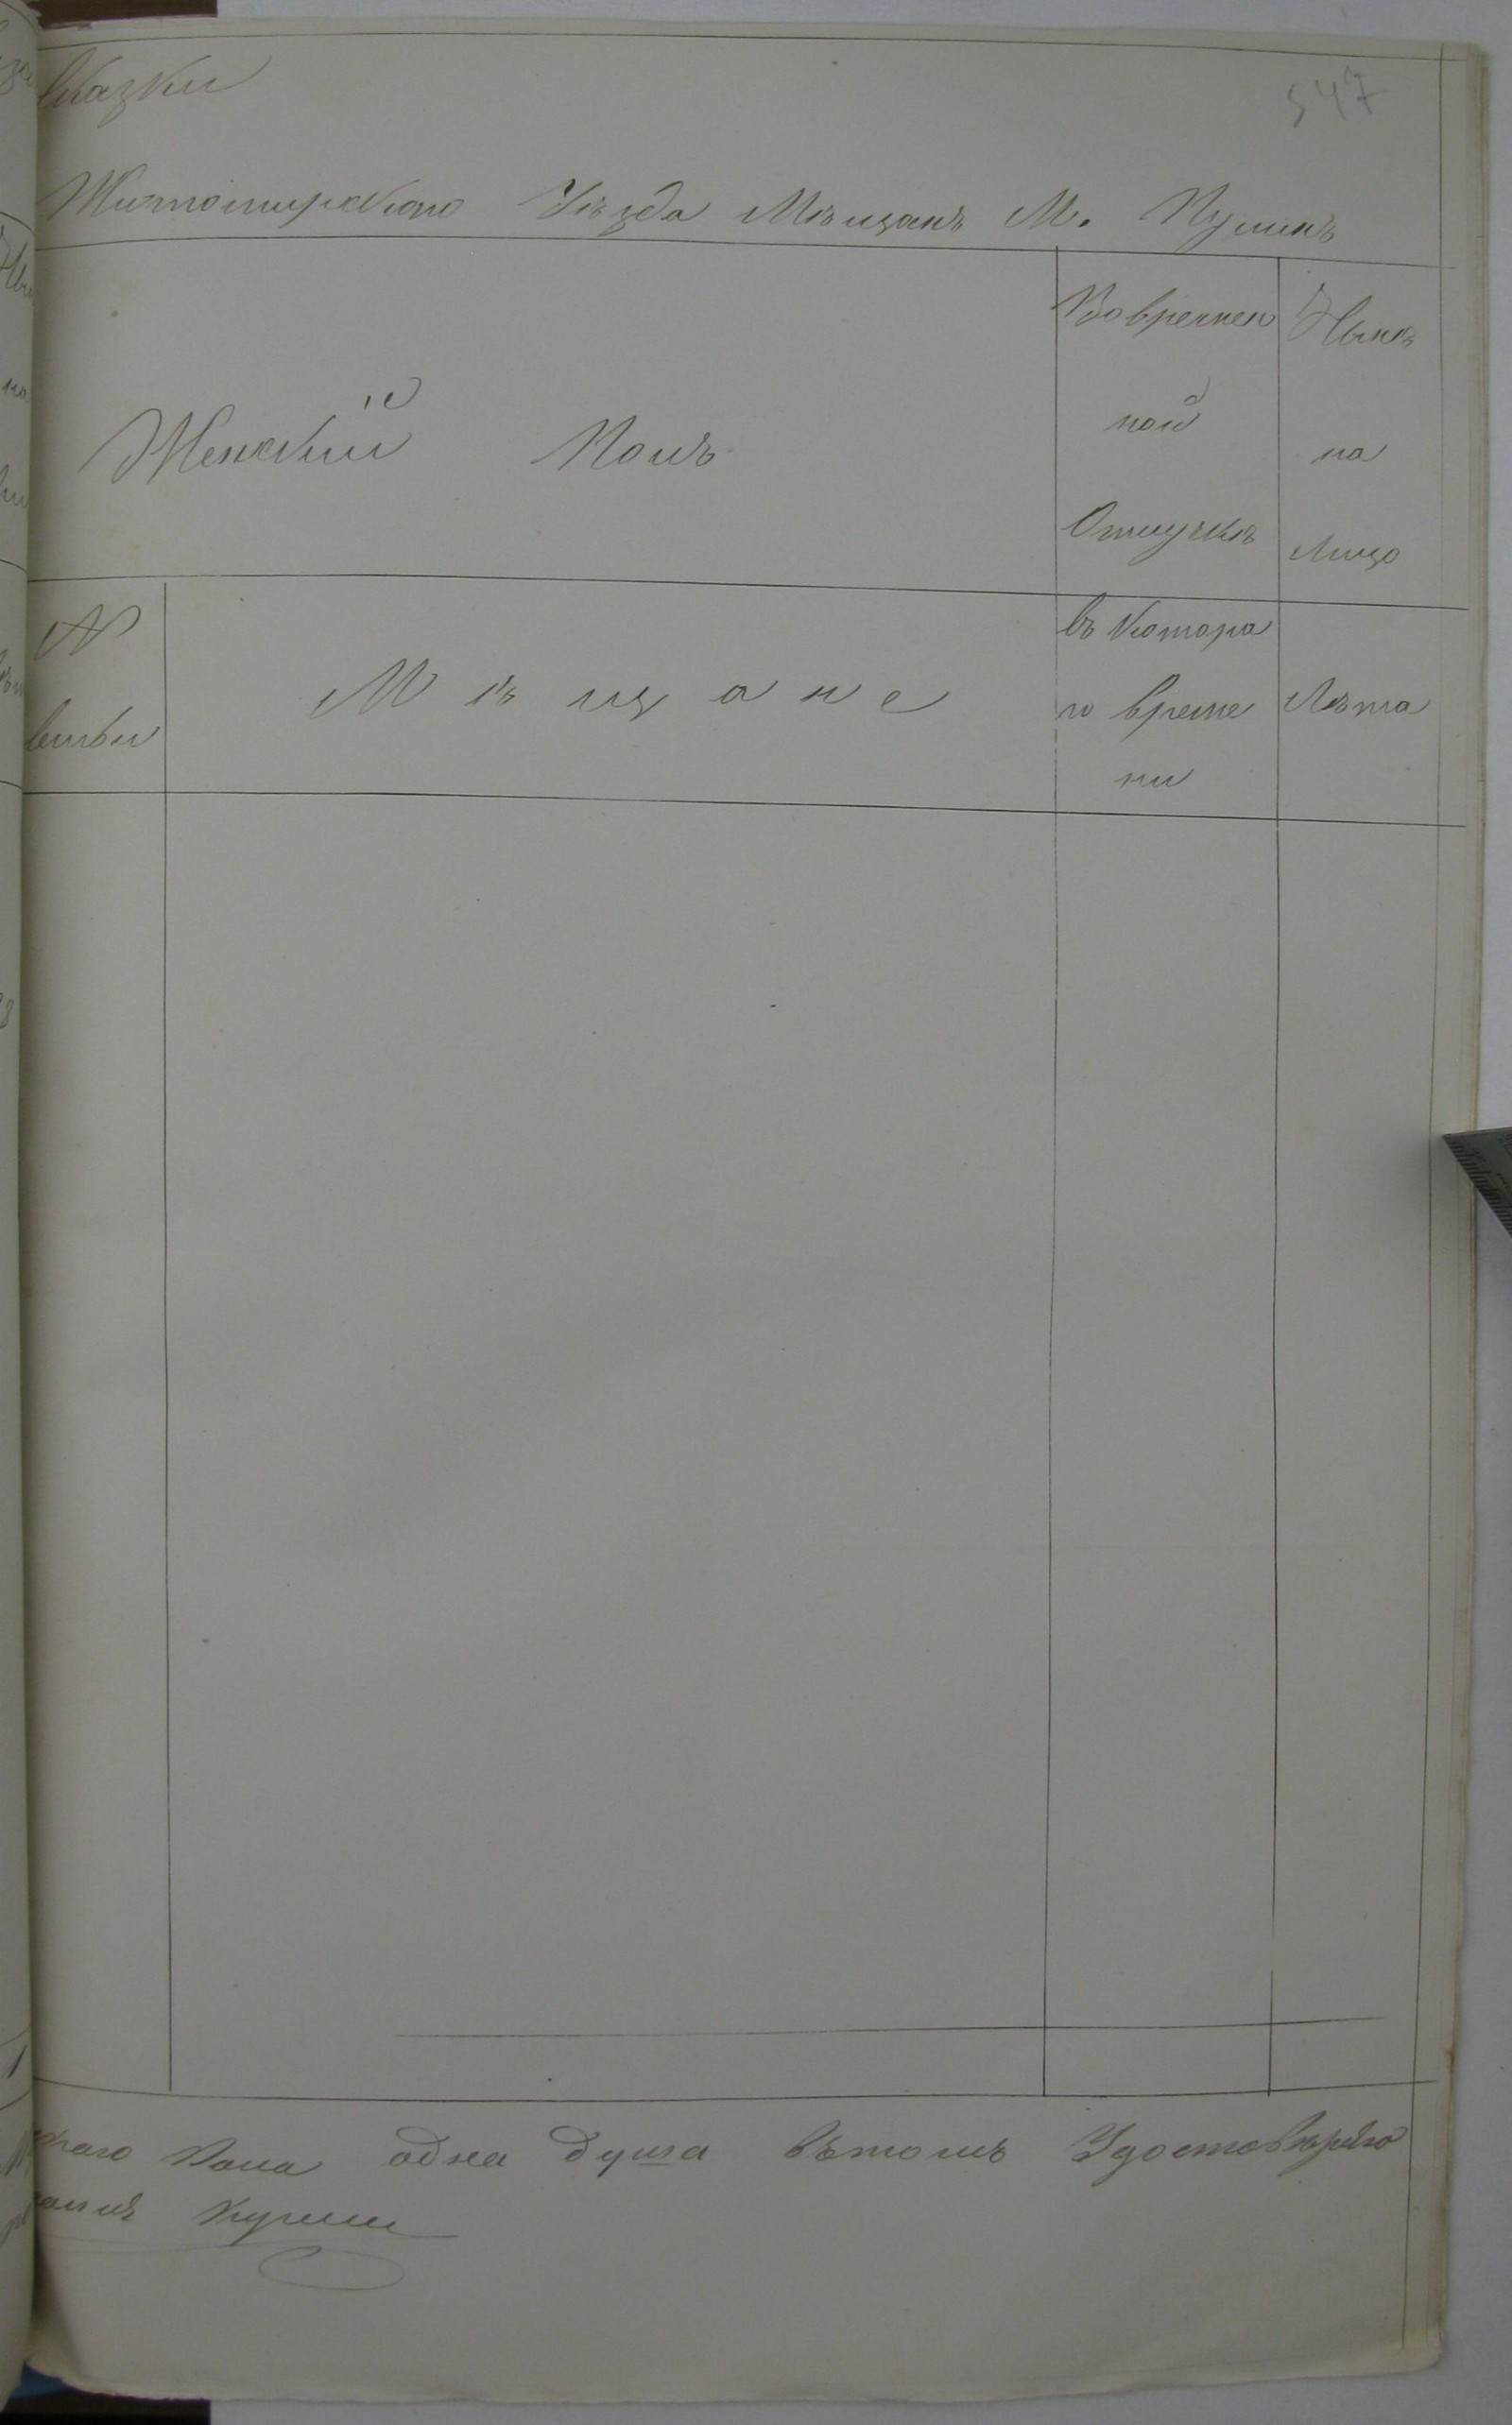 547
Сказки
Житомирскаго Уѣзда Мѣщанъ М. Пулинъ
Женскій Полъ
Вовремен
ной
Отлучкѣ
Нынѣ
на
Лицо
№
семьи
Мѣщане
съ котора
го време
ни
Лѣта
Пола одна душа вътомъ Удостовѣряю